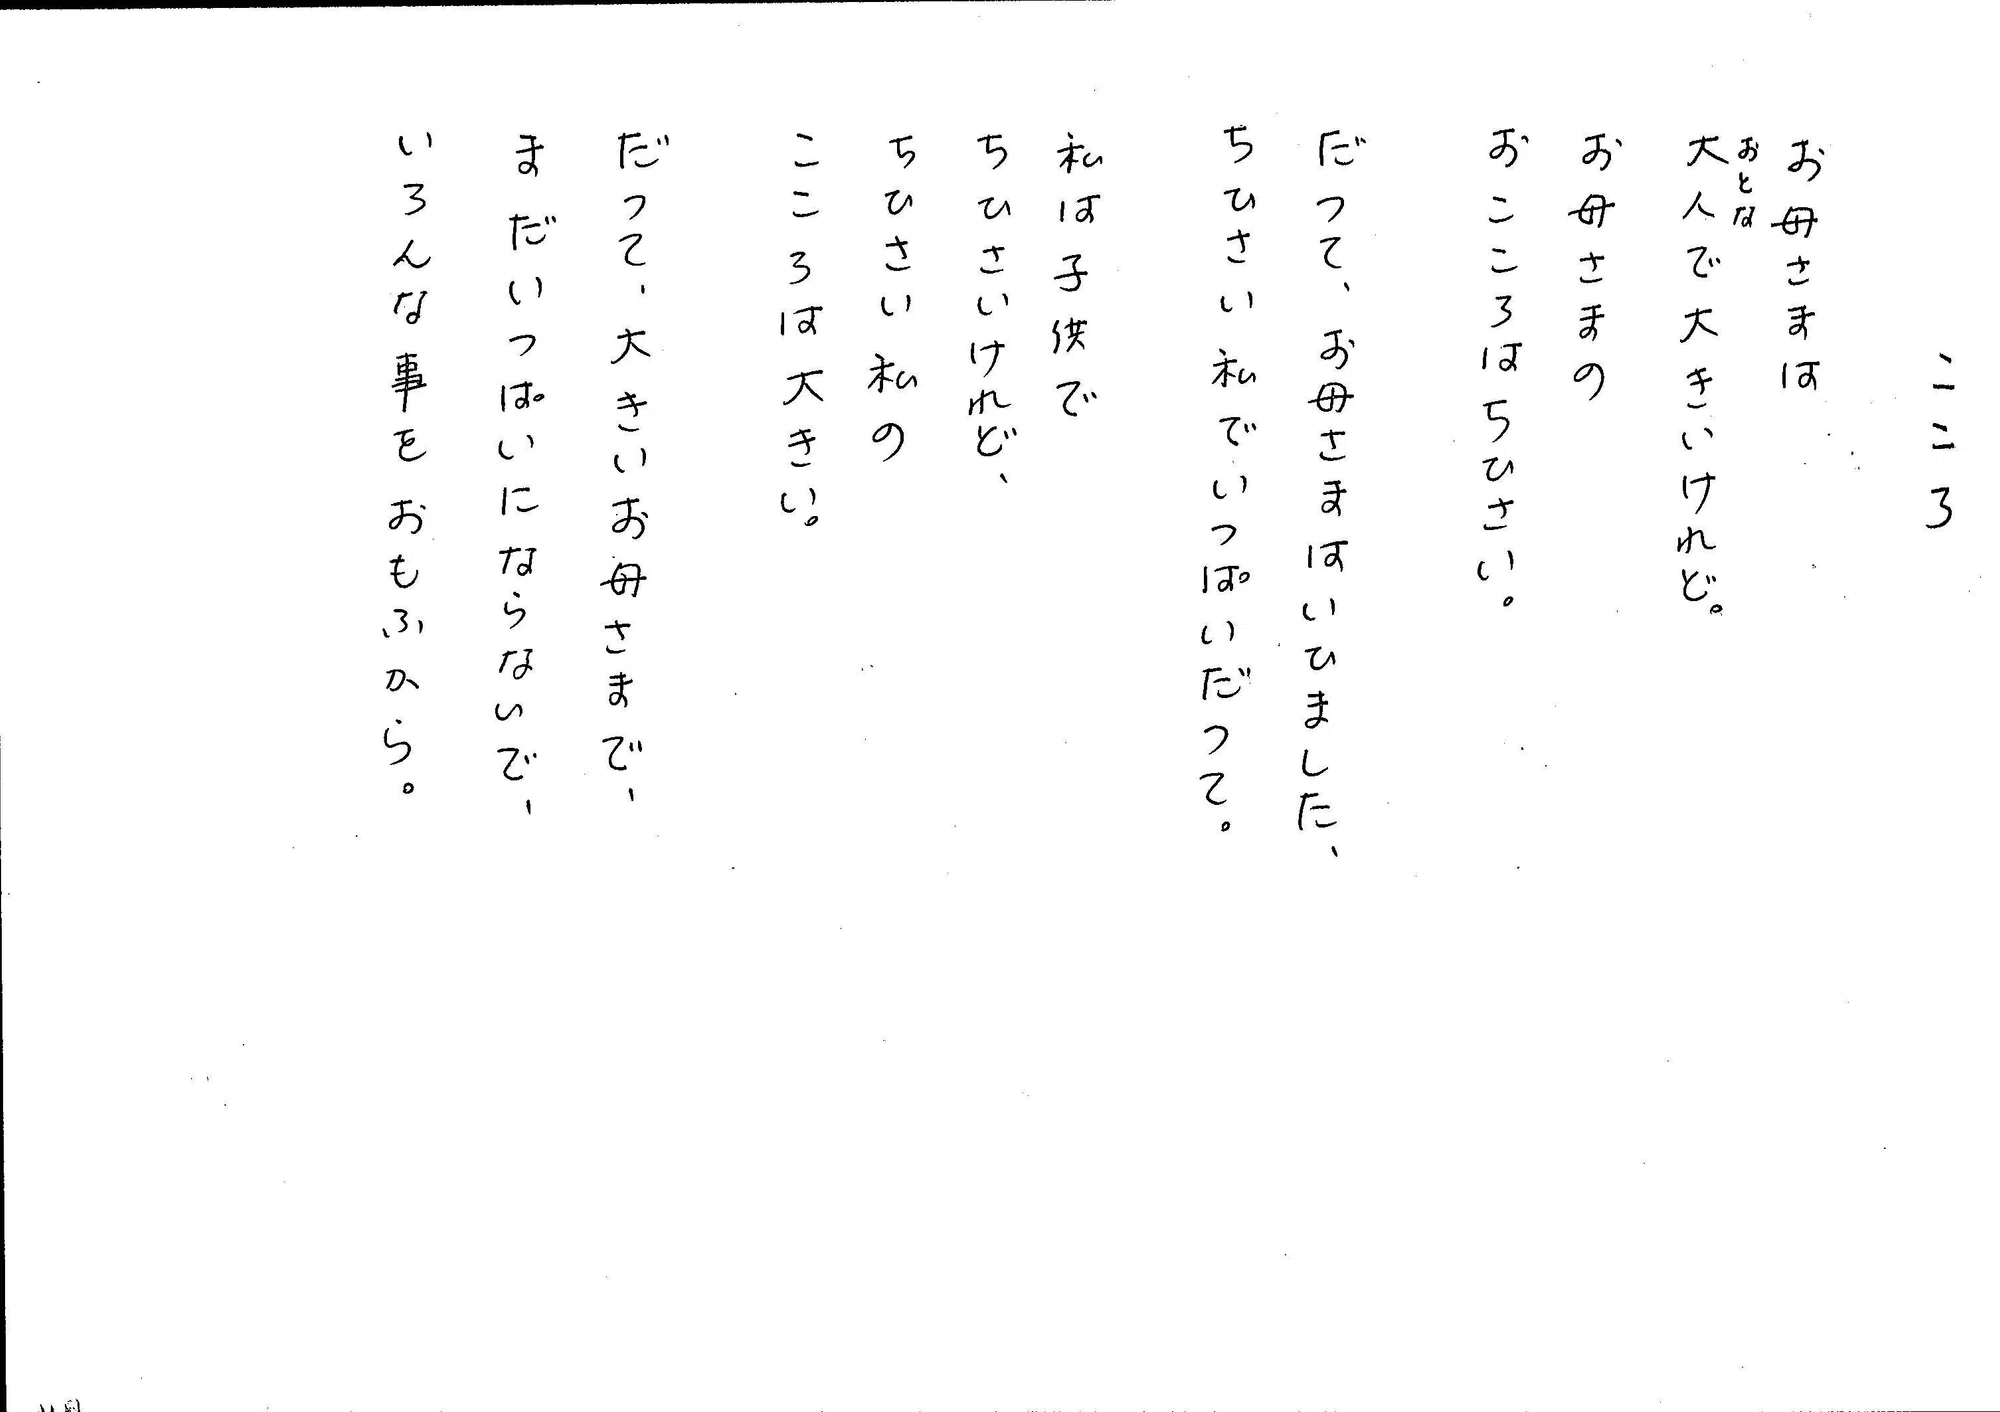 こころ
お母さまは
大人で大きいけれど。
おとな
お母さまの
おこころはちひさい。
だって、お母さまはいひました、
ちひさい私でいっぱいだって。
私は子供で
ちひさいけれど、
ちひさい私の
こころは大きい。
だって、大きいお母さまで、
まだいっぱいにならないで、
いろんな事をおもふから。